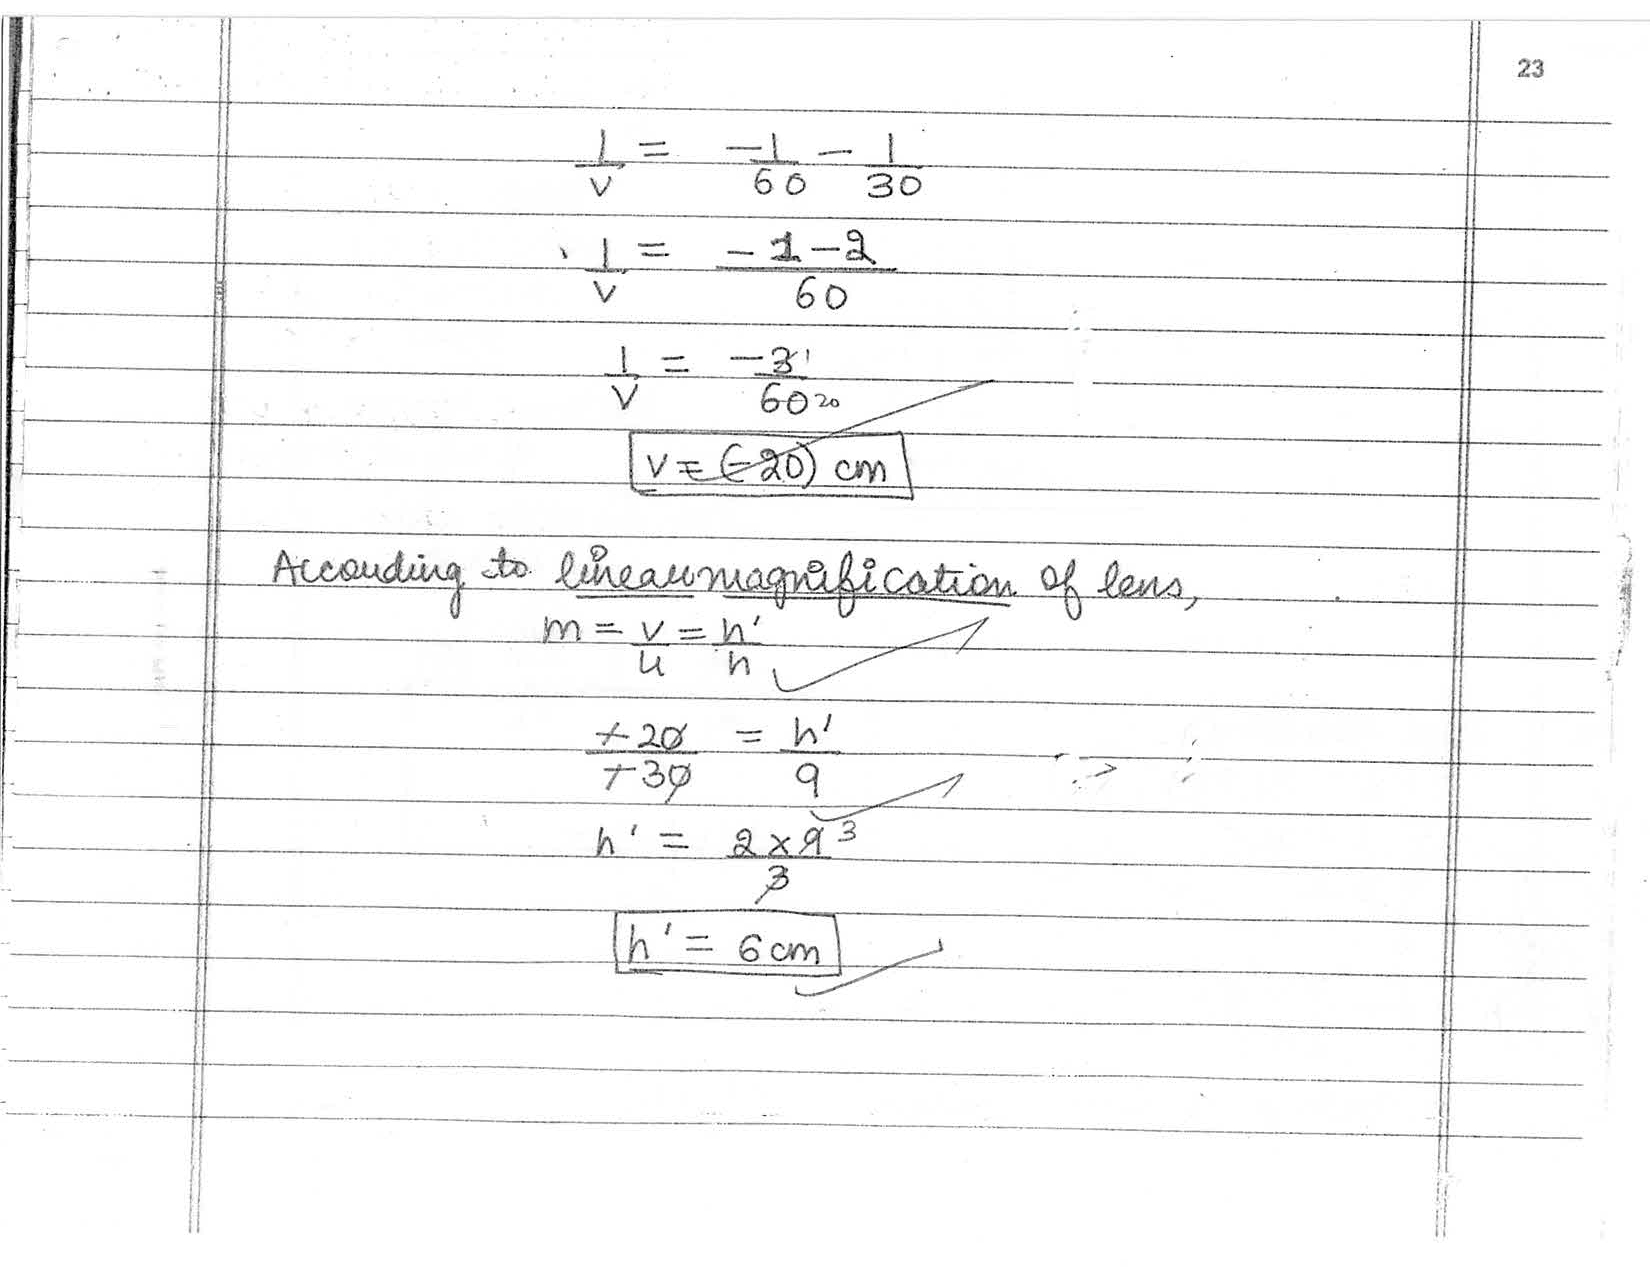 23
1/v = -1/60 - 1/30
1/v = -1-2/60
1/v = -3 1/60 20
v = (-20) cm
According to linear magnification of lens,
m = v/u = h'/h
+20/+30 = h'/9
h' = 2×9 3/3
h' = 6 cm